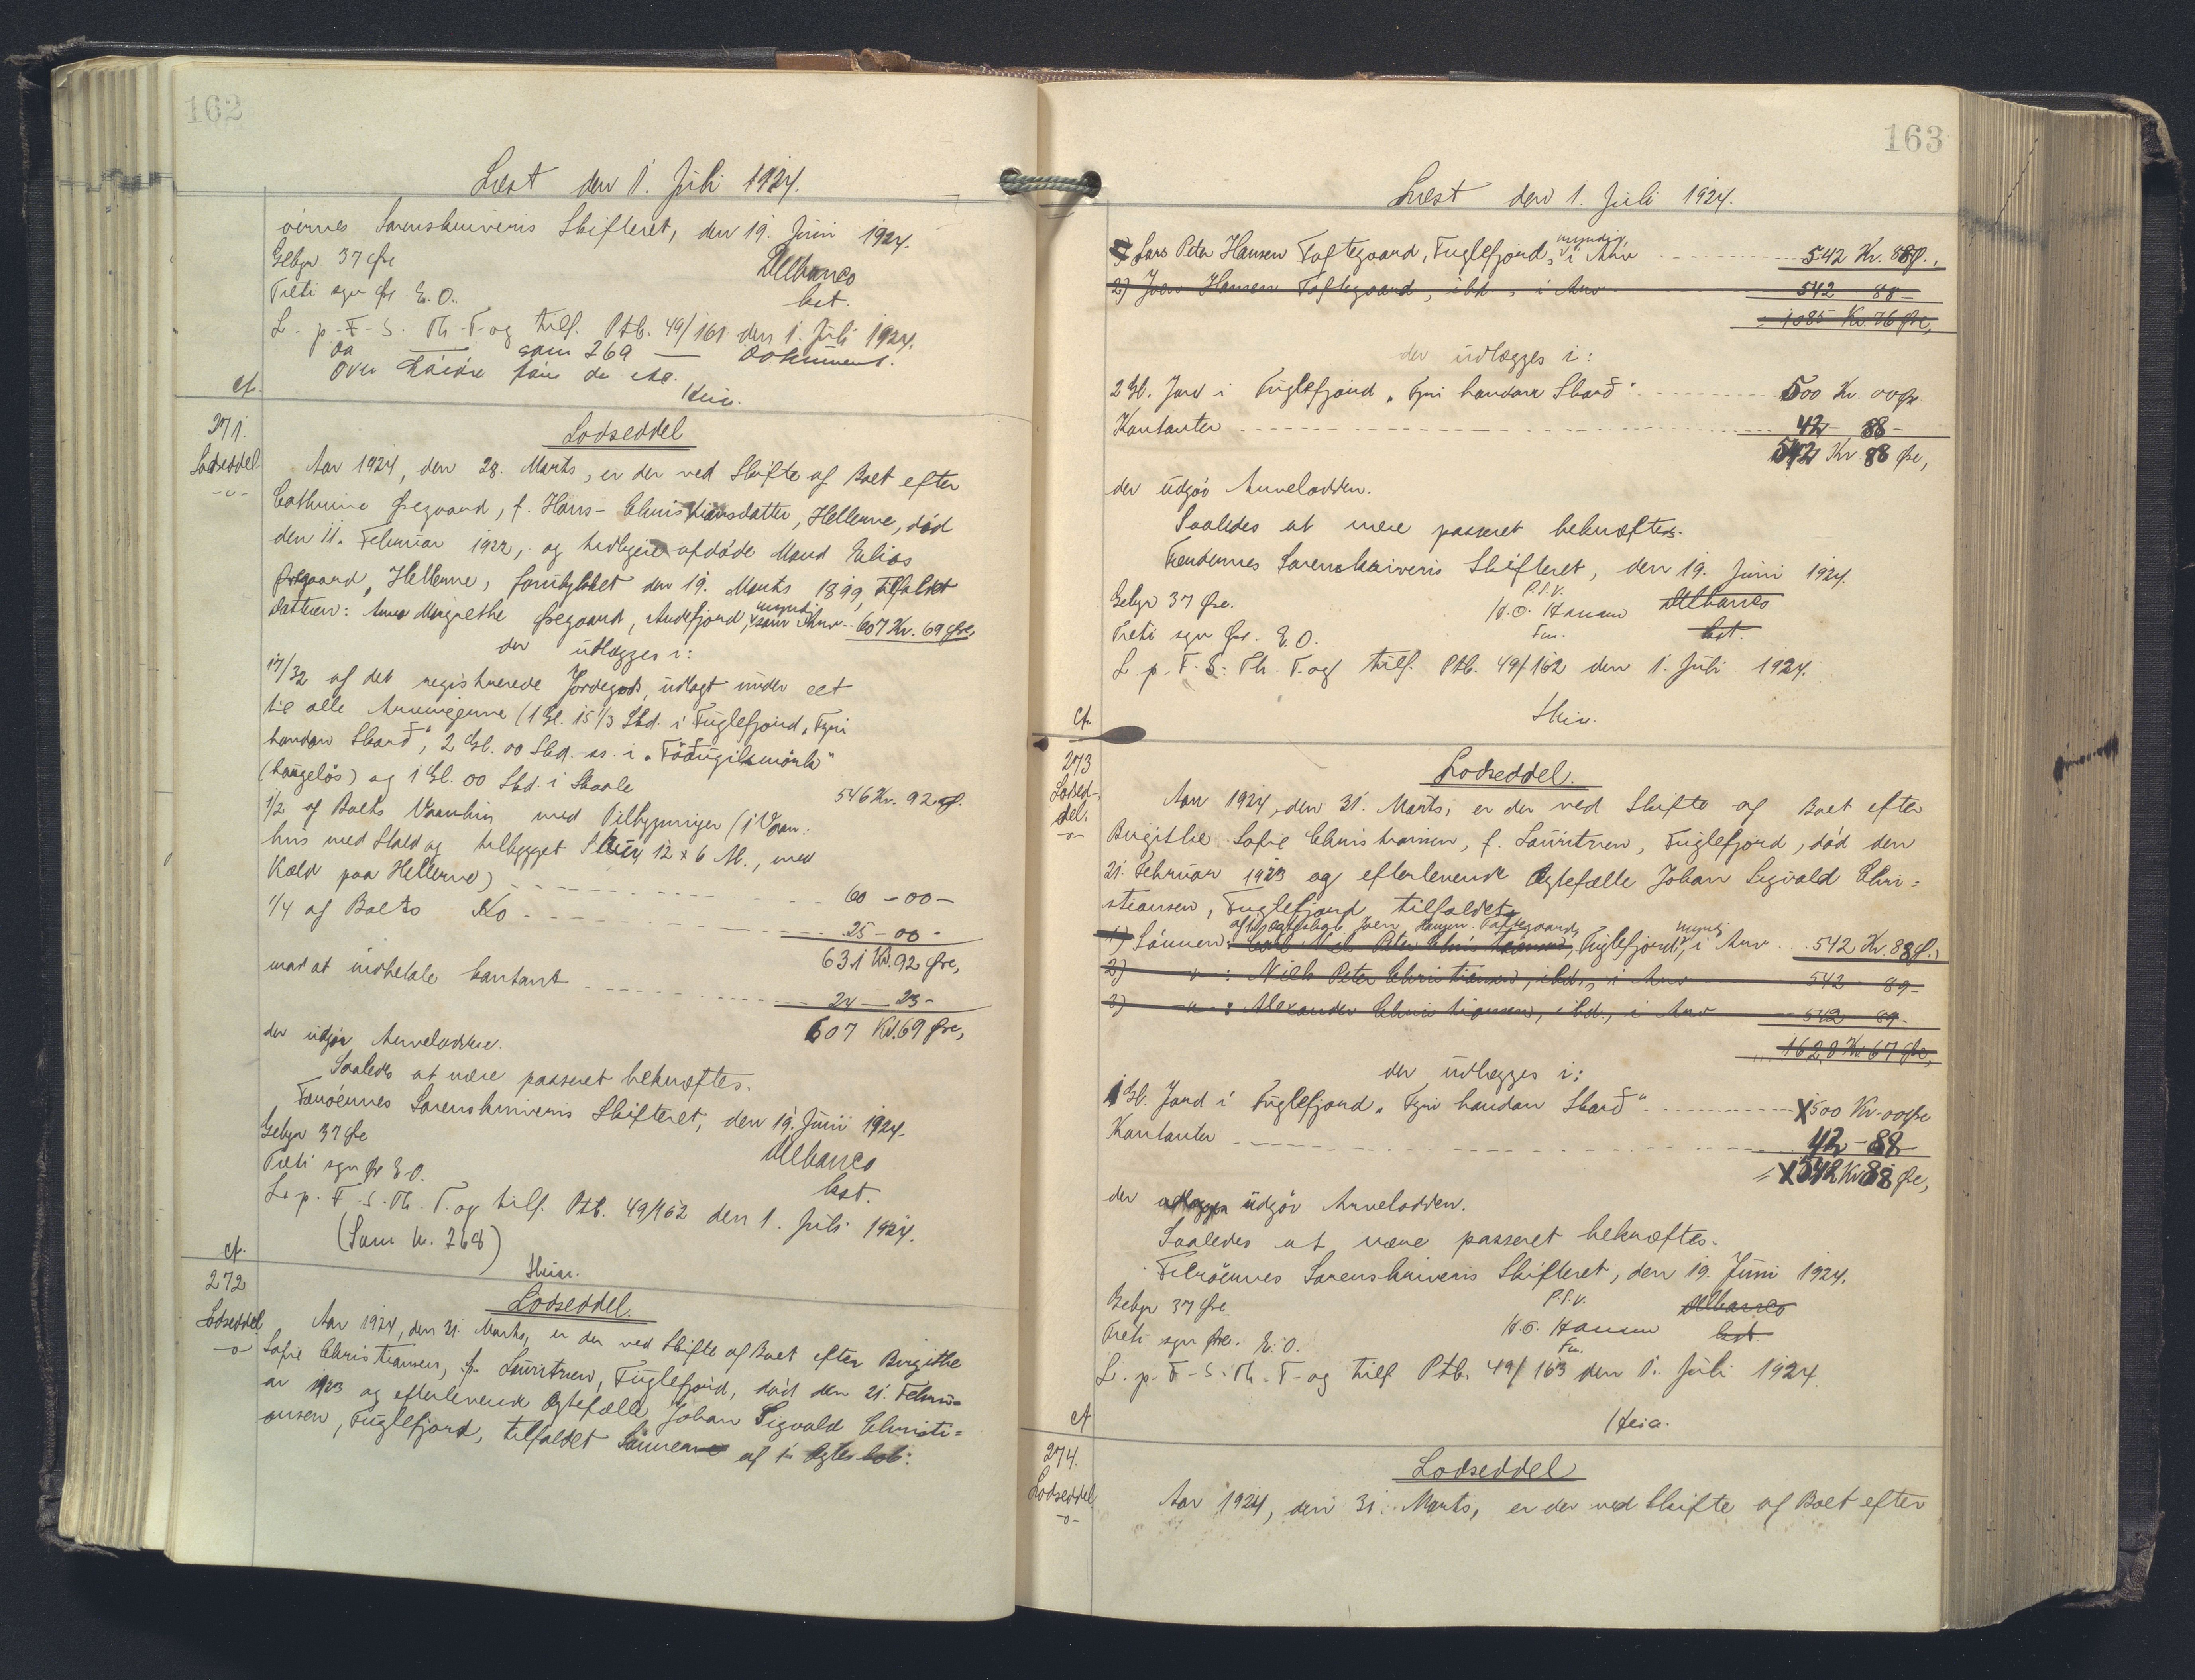 162
Læst den 1. Juli 1924.
oernes Sorenskriveris Skifteret, den 19. Juni 1924.
Gebyr 37 Øre
Treti syv Øre. E. O.
kst.
L. p. F. S. Th. T. og tilf. Ptb. 49/161 den 1. Juli 1924.
som 269 Dokument.
over
cf.
271.
Lodseddel
-o-
Lodseddel
Aar 1924, den 28. Marts, er der ved Skifte af Boet efter
Cathrine Øregaard, f. Hans-Christiansdatter, Hellerne, død
den 11. Februar 1922, og tidligere afdøde Mand Elias
Øregaard, Hellerne, forulykket den 19. Marts 1899, tilfaldet
Datteren: Anna Margrethe Øregaard, Andefjord, myndig, som Arv 607 Kr. 69 Øre,
der udlægges i:
17/32 af det registrerede Jordegods, udlagt under eet
til alle Arvingerne (1 Gl. 15 1/3 Skd. i Fuglefjord, „Fyri
handan Skarð“, 2 Gl. 00 Skd. i
(haugelös) og 1 Gl. 00 Skd. i Skaale 546 Kr. 92 Ø.
1/2 af Boets Vaanhus med Tilbygninger (1 Vaan-
hus med Skæld og tilbygget Skúr 12 x 6 Al., med
Kæld paa Hellerne) 60 - 00 -
1/4 af Boets Ko 25 - 00 -
631 Kr. 92 Øre,
mod at indbetale kontant 24 - 23 -
607 Kr. 69 Øre,
der udgør Arvelodden.
Saaledes at være passeret bekræftes.
Færøernes Sorenskriveris Skifteret, den 19. Juni 1924.
Gebyr 37 Øre
Treti syv Øre E. O.
kst.
L. p. F. S. Th. T. og tilf. Ptb. 49/162 den 1. Juli 1924.
(Som Nr. 268)
cf.
272
Lodseddel
-o-
Lodseddel.
Aar 1924, den 31. Marts, er der ved Skifte af Boet efter Birgithe
Sofie Christiansen, f. Lauritzen, Fuglefjord, død den 21. Febru-
ar 1923 og efterlevende Ægtefælle Johan Sigvald Christi-
ansen, Fuglefjord, tilfaldet Sønnen af 1. Ægteskab:
163
Læst den 1. Juli 1924.
Lars Peter Hansen Toftegaard, Fuglefjord, myndig, i Arv 542 Kr. 88 Ø.,
2) Joen Hansen Toftegaard, ibd., i Arv 542 88 -
1085 Kr. 76 Øre,
der udlægges i:
2 Gl. Jord i Fuglefjord „Fyri handan Skarð“ 500 Kr. 00 Øre
Kontanter 42 - 88 -
542 Kr. 88 Øre,
der udgør Arvelodden.
Saaledes at være passeret bekræftes.
Færøernes Sorenskriveris Skifteret, den 19. Juni 1924.
Gebyr 37 Øre.
P. S. V.
H. O. Hansen
Fm.
kst.
Treti syv Øre. E. O.
L. p. F. S. Th. T. og tilf. Ptb. 49/162 den 1. Juli 1924.
cf.
273
Lodsed-
del.
-o-
Lodseddel.
Aar 1924, den 31. Marts, er der ved Skifte af Boet efter
Birgithe Sofie Christiansen, f. Lauritzen, Fuglefjord, død den
21. Februar 1923 og efterlevende Ægtefælle Johan Sigvald Chri-
stiansen, Fuglefjord tilfaldet
af 1. Ægteskab Joen Hansen Toftegaard,
1) Sønnen: Peter Christiansen, Fuglefjord, myndig, i Arv 542 Kr. 88 Ø.,
2) - " - : Niels Peter Christiansen, ibd., i Arv 542 89 -
3) - " - : Alexander Christiansen, ibd., i Arv 542 89 -
1628 Kr. 67 Øre,
der udlægges i:
Gl. Jord i Fuglefjord „Fyri handan Skarð“ 500 Kr. 00 Øre
Kontanter 42 - 88 -
542 Kr. 88 Øre,
der udgør Arvelodden.
Saaledes at være passeret bekræftes.
Færøernes Sorenskriveris Skifteret, den 19. Juni 1924.
Gebyr 37 Øre
P. S. V.
H. O. Hansen
Fm.
kst.
Treti syv Øre. E. O.
L. p. F. S. Th. T. og tilf Ptb. 49/163 den 1. Juli 1924.
cf.
274.
Lodseddel
-o-
Lodseddel
Aar 1924, den 31. Marts, er der ved Skifte af Boet efter